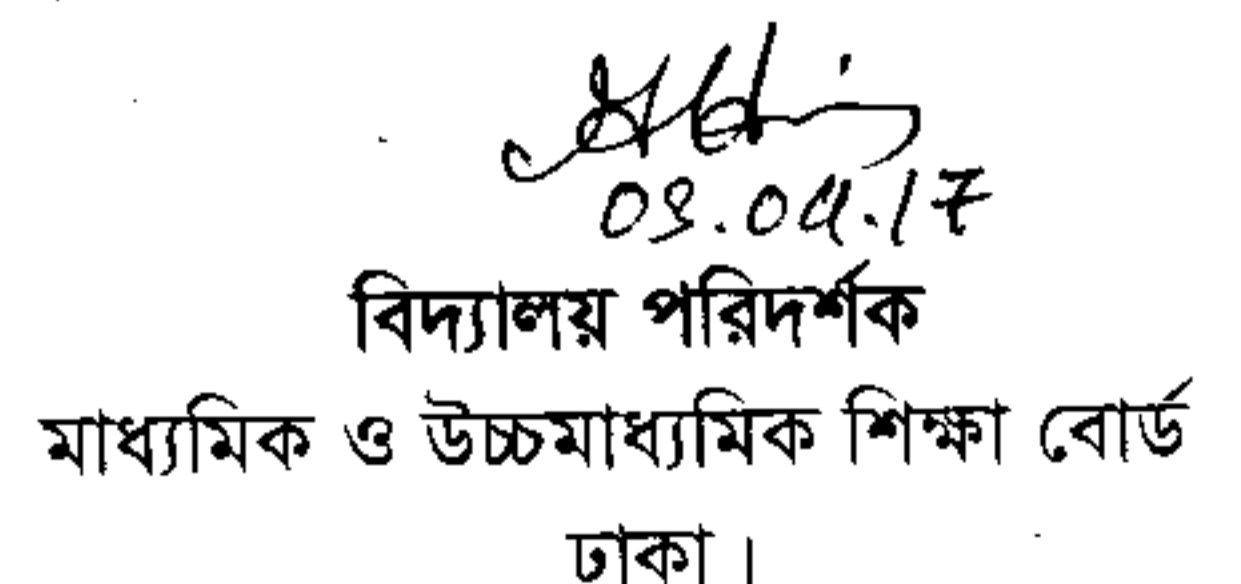 ০৪.০৪.১৭
বিদ্যালয় পরিদর্শক
মাধ্যমিক ও উচ্চমাধ্যমিক শিক্ষা বোর্ড
ঢাকা।